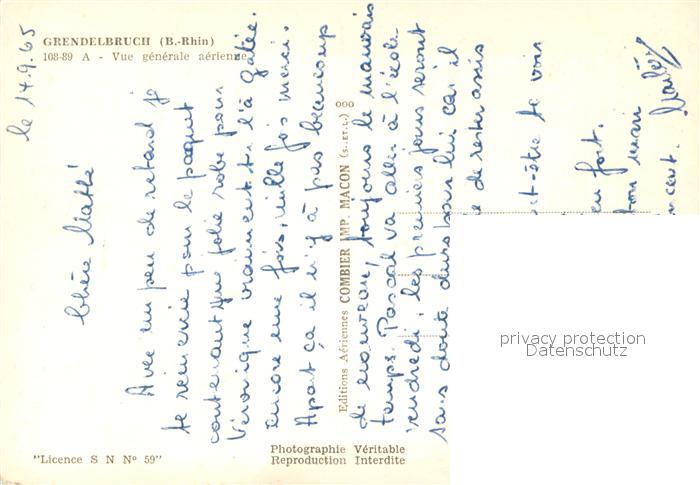 GRENDELBRUCH (B.-Rhin)
108-89 A - Vue générale aérienne
le 14.9.65
Chère
Avec un peu de retard je
te remercie pour le paquet
contenant une jolie robe pour
Véronique vraiment tu l'à gâtée.
Encore une fois, mille fois merci.
Apart ça il n'y à pas beaucoup
de nouveau, toujours le mauvais
temps. Pascal va aller à l'école
vendredi, les premiers jours seront
sans doute durs pour lui car il
de rester assis
t-être te voir
en fort.
ton mari
Editions Aériennes COMBIER IMP. MACON (S.-ET-L.)
"Licence S N Nº 59"
Photographie Véritable
Reproduction Interdite
privacy protection
Datenschutz